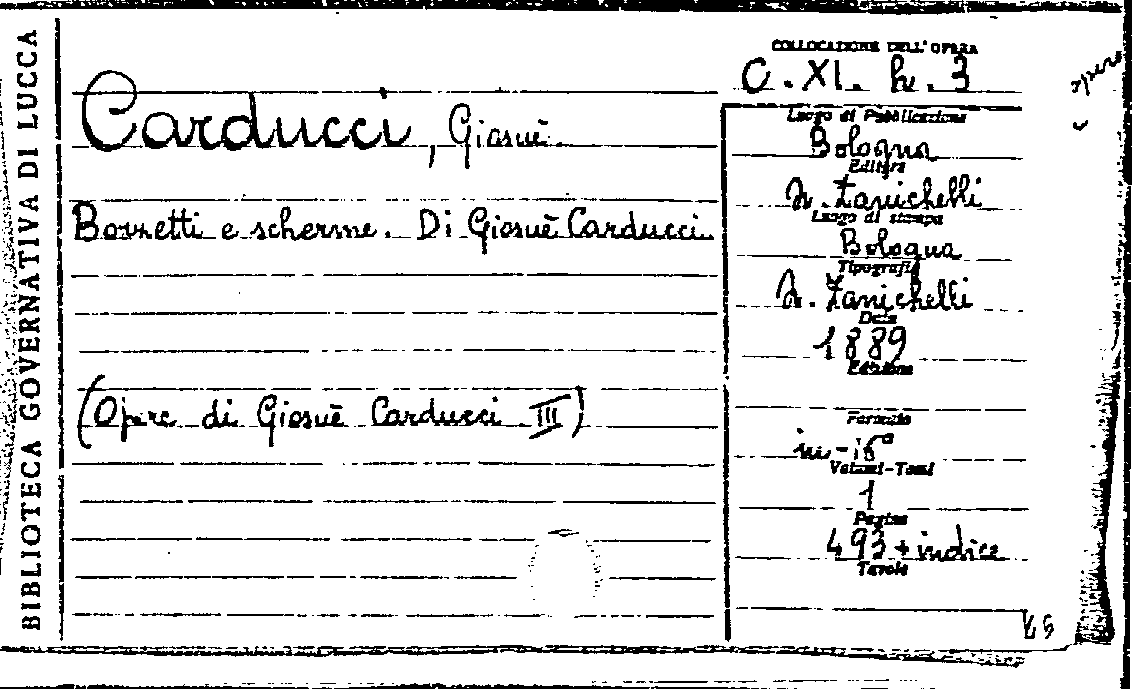 BIBLIOTECA GOVERNATIVA DI LUCCA
COLLOCAZIONE DELL'OPERA
C. XI. h. 3
opere
Carducci, Giosuè.
Bozzetti e scherme. Di Giosuè Carducci.
(Opere di Giosuè Carducci III)
Luogo di Pubblicazione
Bologna
Editore
N. Zanichelli
Luogo di stampa
Bologna
Tipografia
N. Zanichelli
Data
1889
Edizione
Formato
in-16ª
Volumi-Tomi
1
Pagine
493 + indice
Tavole